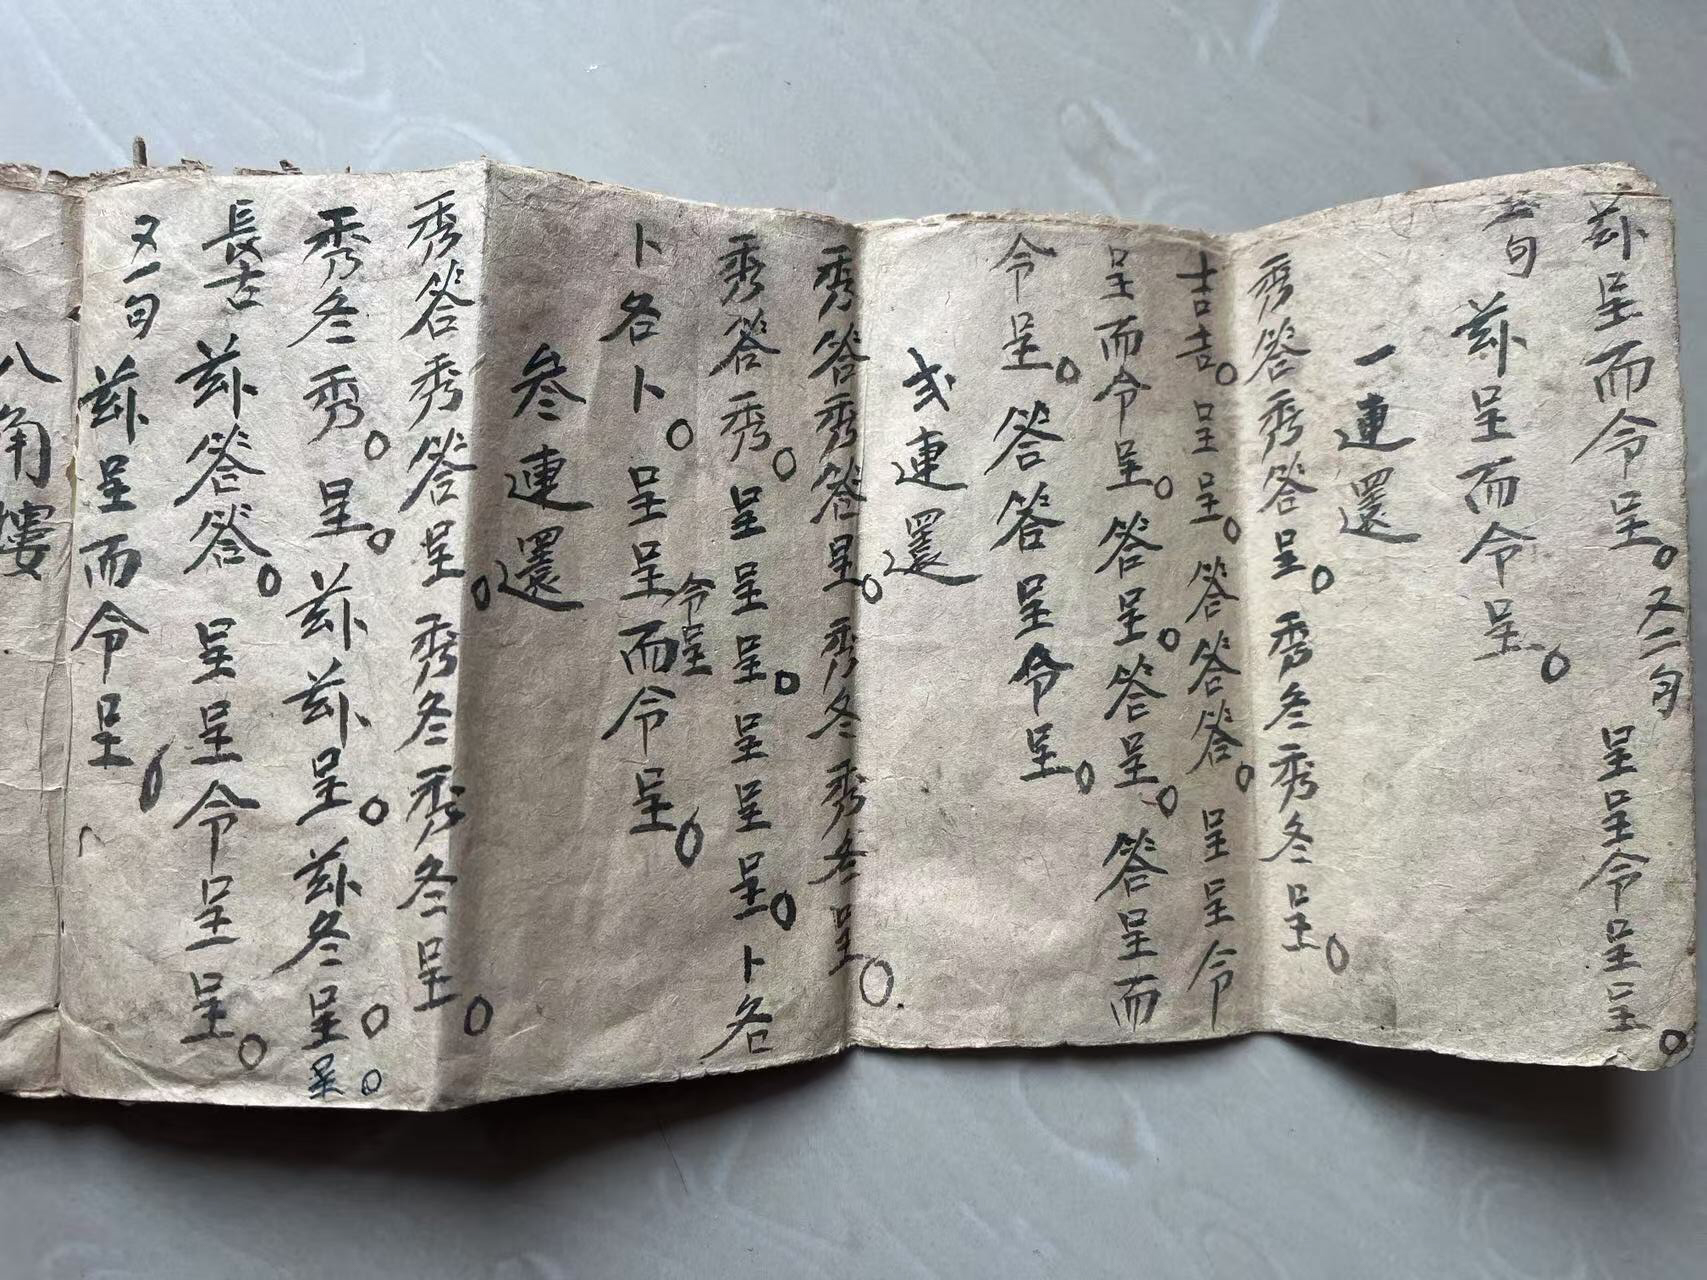 𦬼卟呈而令呈。又二句 呈呈令呈呈。
句 𦬼卟呈而令呈。
一連還
秀答秀答呈。秀冬秀冬呈。
吉吉。呈呈。答答答。呈呈令
呈而令呈。答呈。答呈。答呈而
令呈。答答呈令呈。
弍連還
秀答秀答呈。秀冬秀冬呈。
秀答秀。呈呈呈。呈呈呈。卜各
令呈
卜各卜。呈呈而令呈。
叄連還
秀答秀答呈。秀冬秀冬呈。
秀冬秀。呈。呈。冬呈。呈。
長吉 答答。呈呈令呈呈。
又一句 呈而令呈。
八角